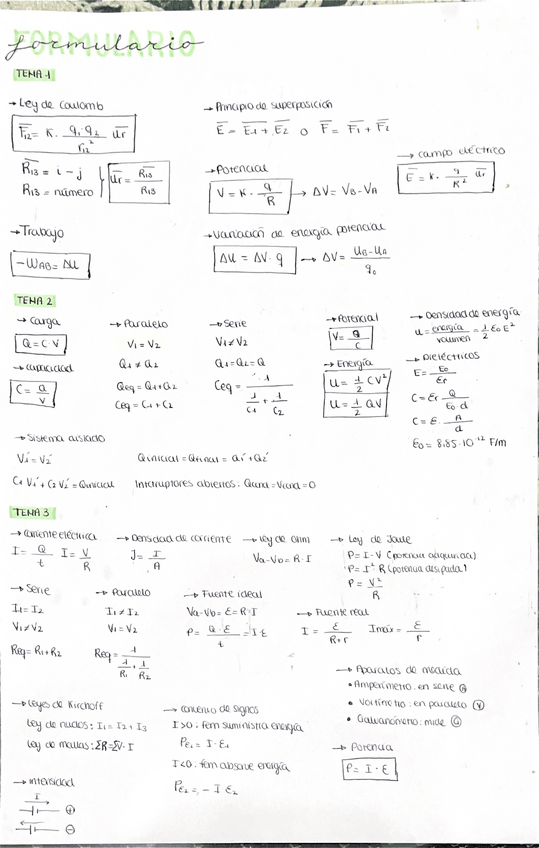 FORMULARIO
formulario
TEMA 1
→ Ley de coulomb
F₁₂ = K · q₁·q₂ / r₁₂² ūr
R̄₁₃ = i - j
R₁₃ = número
ūr = R̄₁₃ / R₁₃
→ Principio de superposición
Ē = Ē₁ + Ē₂ o F̄ = F̄₁ + F̄₂
→ Potencial
V = K · q / R → ΔV = VB - VA
→ campo eléctrico
Ē = K · q / R² ūr
→ Trabajo
-WAB = ΔU
→ Variación de energía potencial
ΔU = ΔV · q → ΔV = UB - UA / q₀
TEMA 2
→ Carga
Q = C · V
→ capacidad
C = Q / V
→ Paralelo
V₁ = V₂
Q₁ ≠ Q₂
Qeq = Q₁ + Q₂
Ceq = C₁ + C₂
→ Serie
V₁ ≠ V₂
Q₁ = Q₂ = Q
Ceq = 1 / (1/C₁ + 1/C₂)
→ Potencial
V = Q / C
→ Energía
U = 1/2 CV²
U = 1/2 QV
→ Densidad de energía
u = energía / volumen = 1/2 ε₀ E²
→ Dieléctricos
E = E₀ / εr
C = εr Q / E₀ · d
C = ε · A / d
ε₀ = 8,85 · 10⁻¹² F/m
→ Sistema aislado
V₁' = V₂'
Qinicial = Qfinal = Q₁' + Q₂'
C₁ V₁' + C₂ V₂' = Qinicial
Interruptores abiertos: Qcond = Vcond = 0
TEMA 3
→ Corriente eléctrica
I = Q / t I = V / R
→ Densidad de corriente
J = I / A
→ Ley de Ohm
Va - Vb = R · I
→ Ley de Joule
P = I · V (potencia adquirida)
P = I² R (potencia disipada)
P = V² / R
→ Serie
I₁ = I₂
V₁ ≠ V₂
Req = R₁ + R₂
→ Paralelo
I₁ ≠ I₂
V₁ = V₂
Req = 1 / (1/R₁ + 1/R₂)
→ Fuente ideal
Va - Vb = ε = R · I
P = Q · ε / t = I · ε
→ Fuente real
I = ε / R + r Imáx = ε / r
→ Aparatos de medida
• Amperímetro: en serie Ⓐ
• Voltímetro: en paralelo Ⓥ
• Galvanómetro: mide Ⓖ
→ Leyes de Kirchoff
Ley de nudos: I₁ = I₂ + I₃
Ley de mallas: ΣR = ΣV · I
→ convenio de signos
I > 0: fem suministra energía
Pε₁ = I · ε₁
I < 0: fem absorve energía
Pε₂ = - I ε₂
→ Potencia
P = I · ε
→ Intensidad
I
⊕
⊖